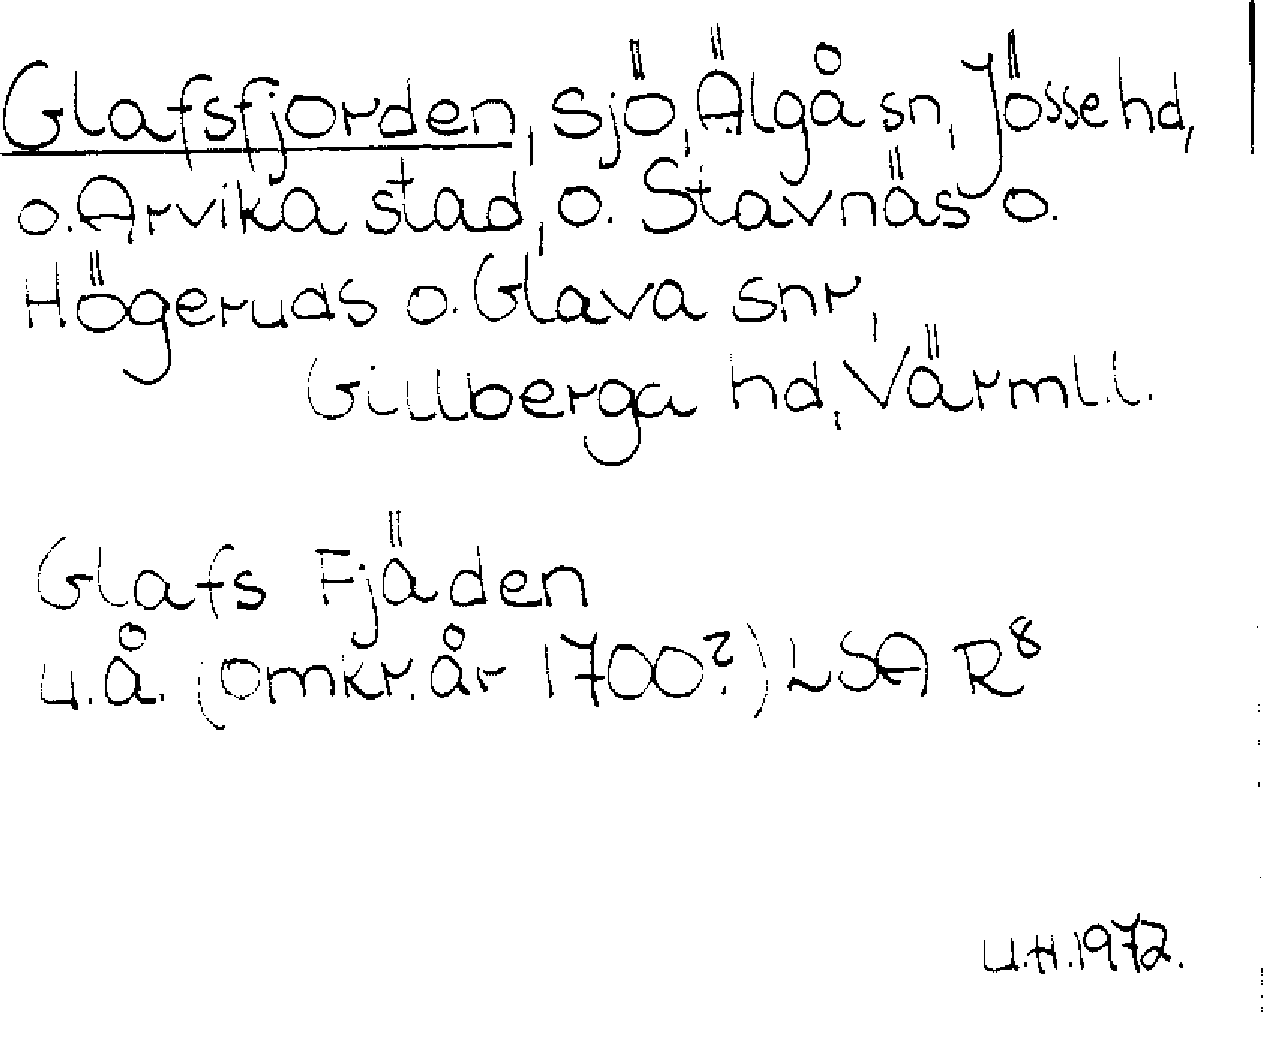 Glafsfjorden, sjö, Älgå sn, Jösse hd,
o. Arvika stad, o. Stavnäs o.
Högeruds o. Glava snr,
Gillberga hd, Värml.l.
Glafs Fjäden
u.å. (omkr. år 1700?) LSA R8
U.H. 1972.